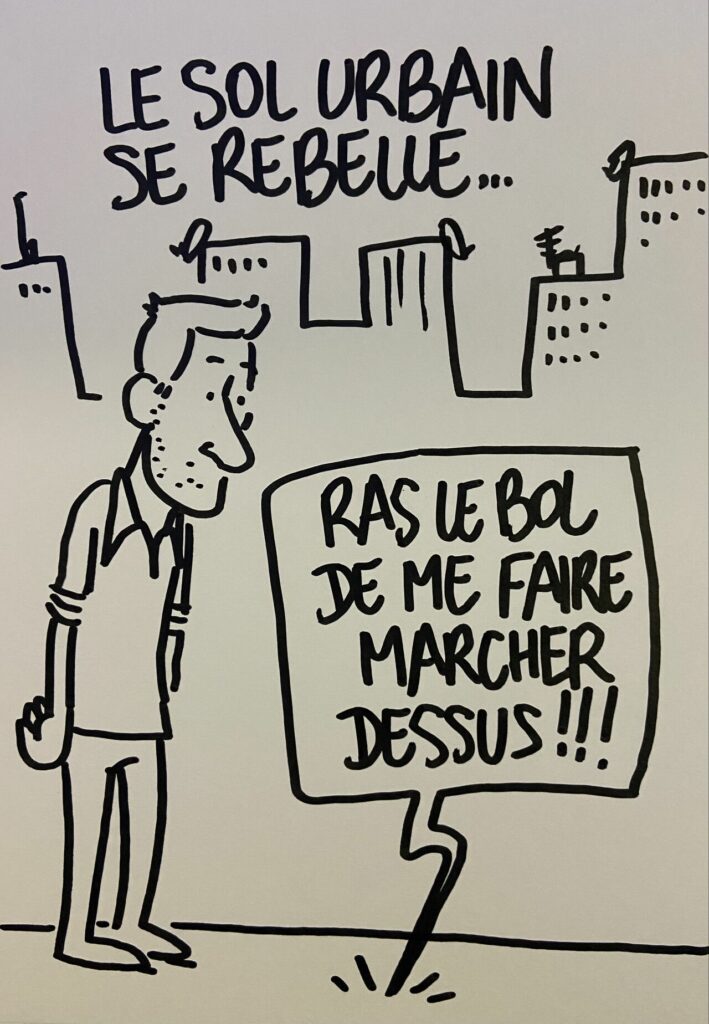 LE SOL URBAIN
SE REBELLE...
RAS LE BOL
DE ME FAIRE
MARCHER
DESSUS!!!